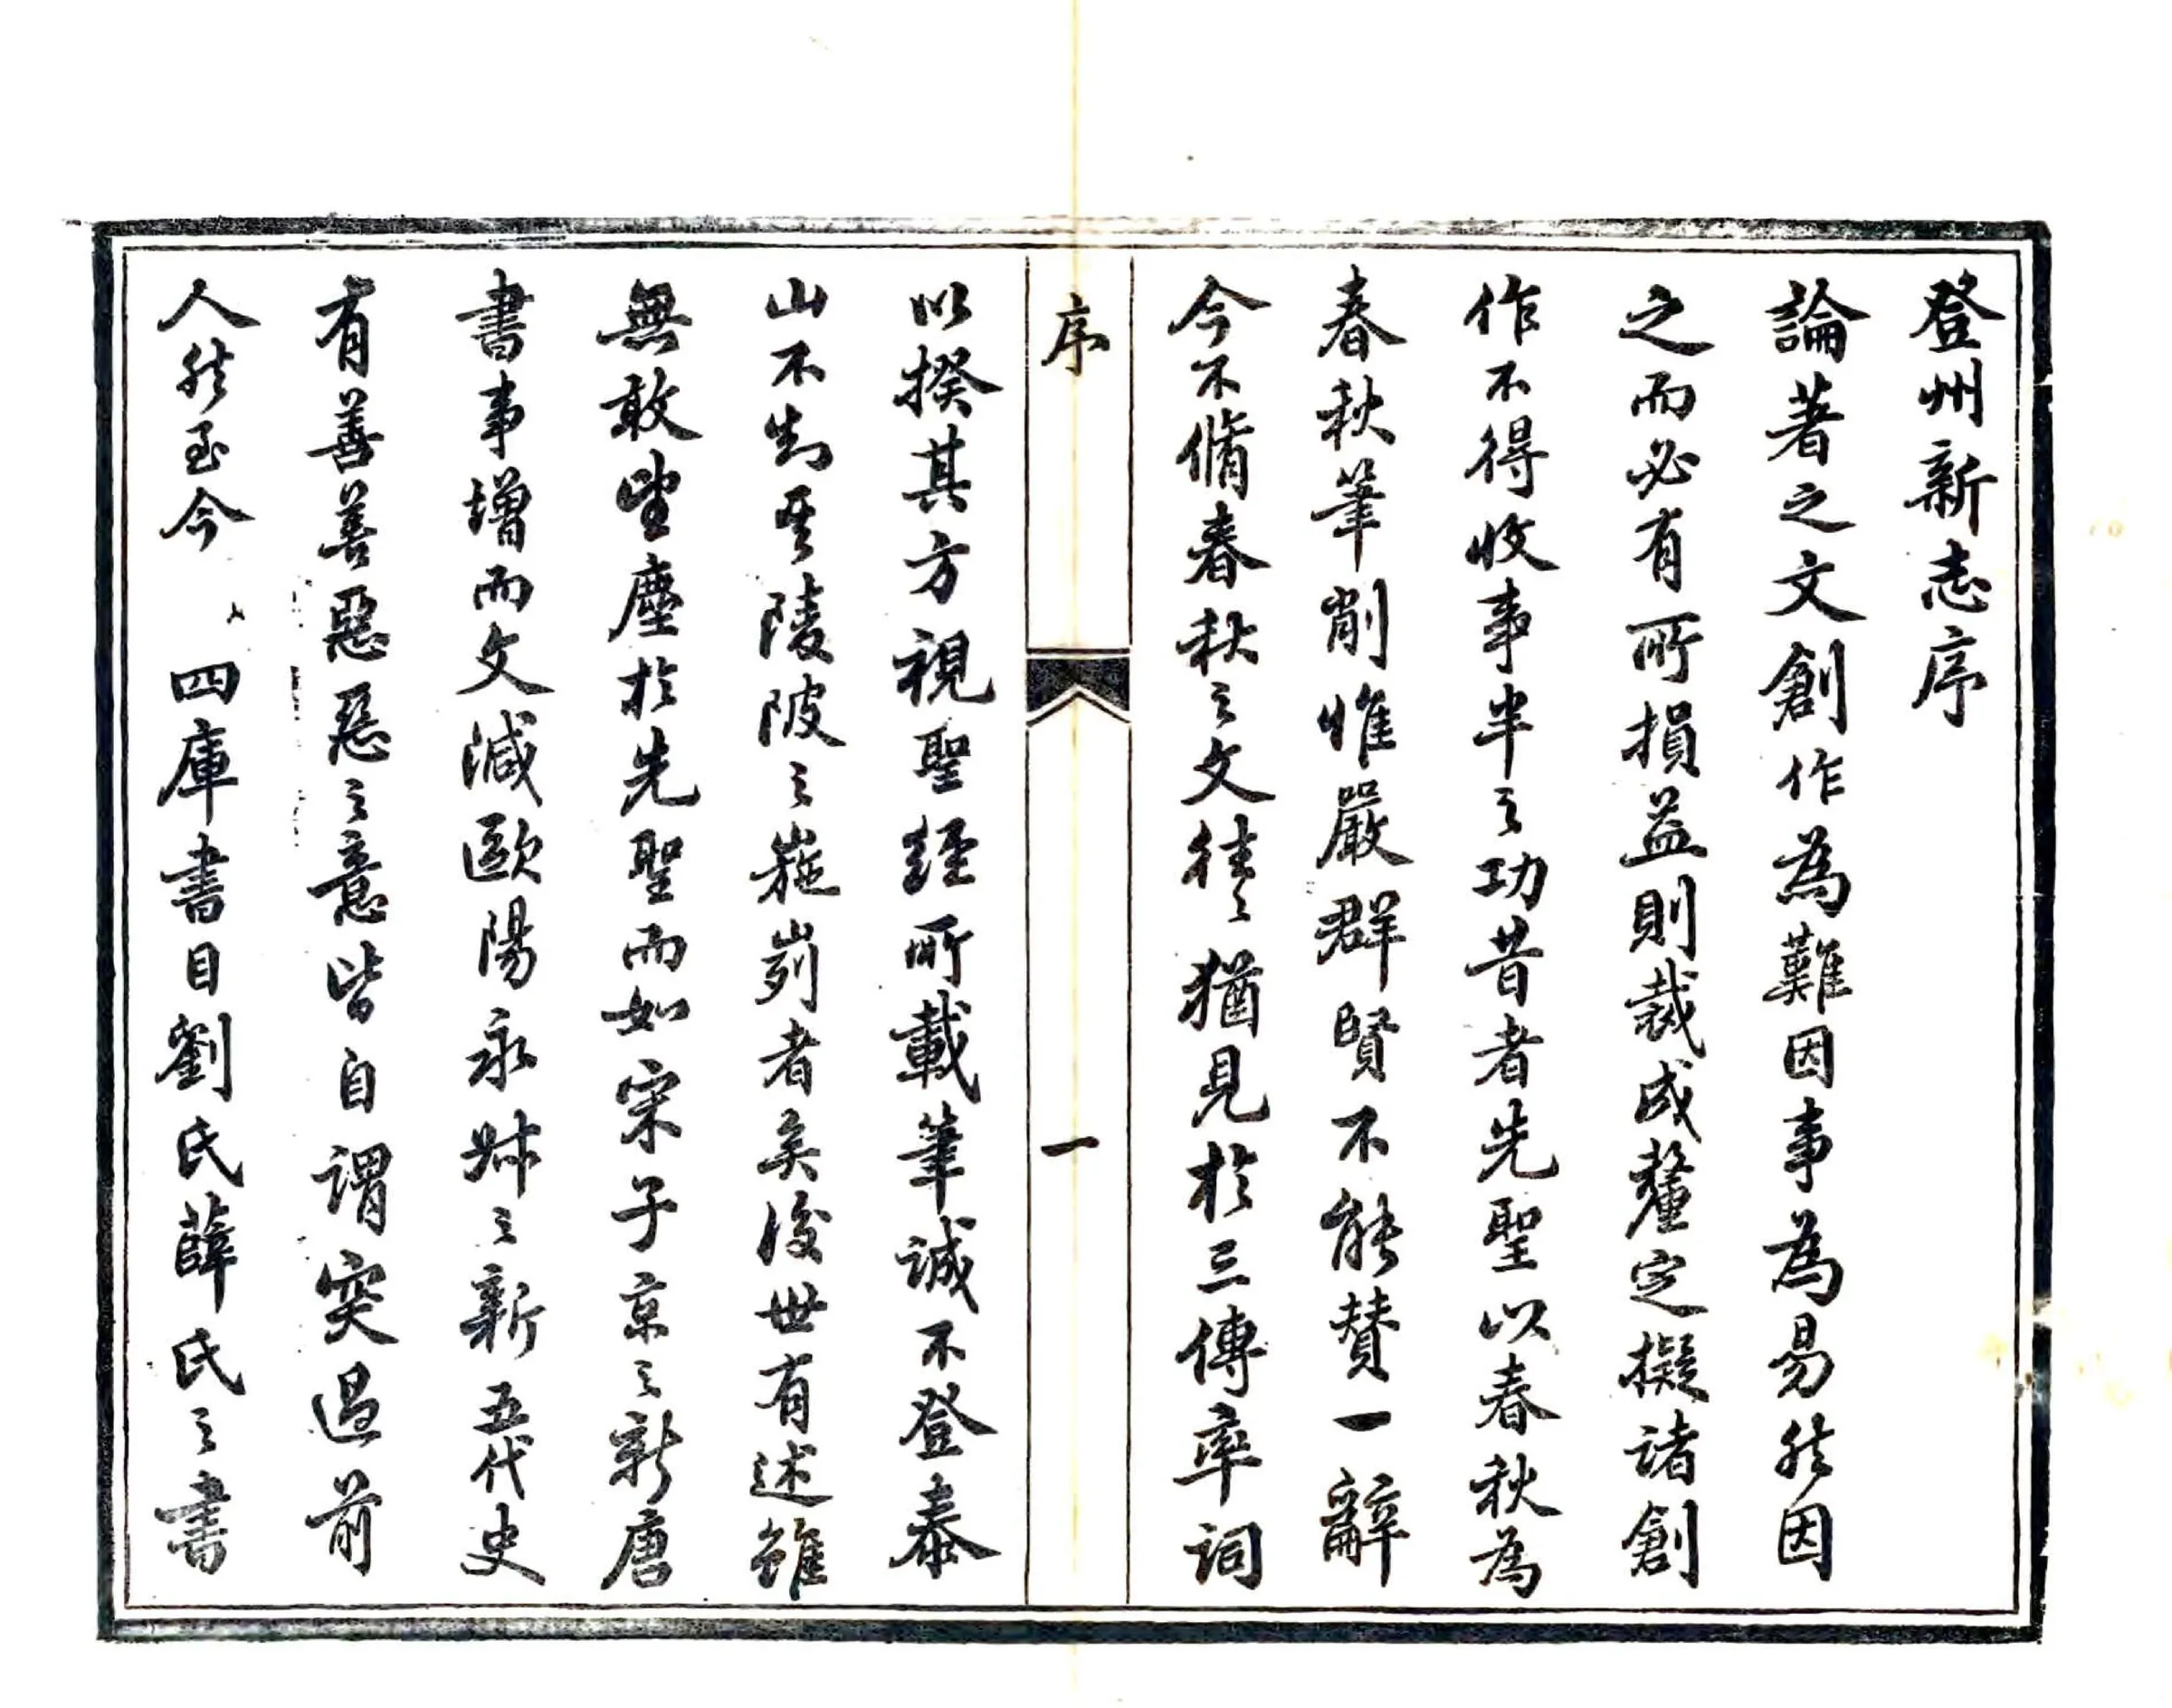 登州新志序
論著之文創作為難因事為易然因
之而必有所損益則裁成釐定擬諸創
作不得收事半之功昔者先聖以春秋為
春秋筆削惟嚴群賢不能贊一辭
今不脩春秋之文徃〻猶見於三傳率詞
序
一
以揆其方視聖經所載筆誠不登泰
山不知陵陂之嶐峛者矣後世有述雖
無敢望塵於先聖而如宋子京之新唐
書事增而文減歐陽永叔之新五代史
有善善惡惡之意皆自謂突過前
人然至今 四庫書目劉氏薛氏之書